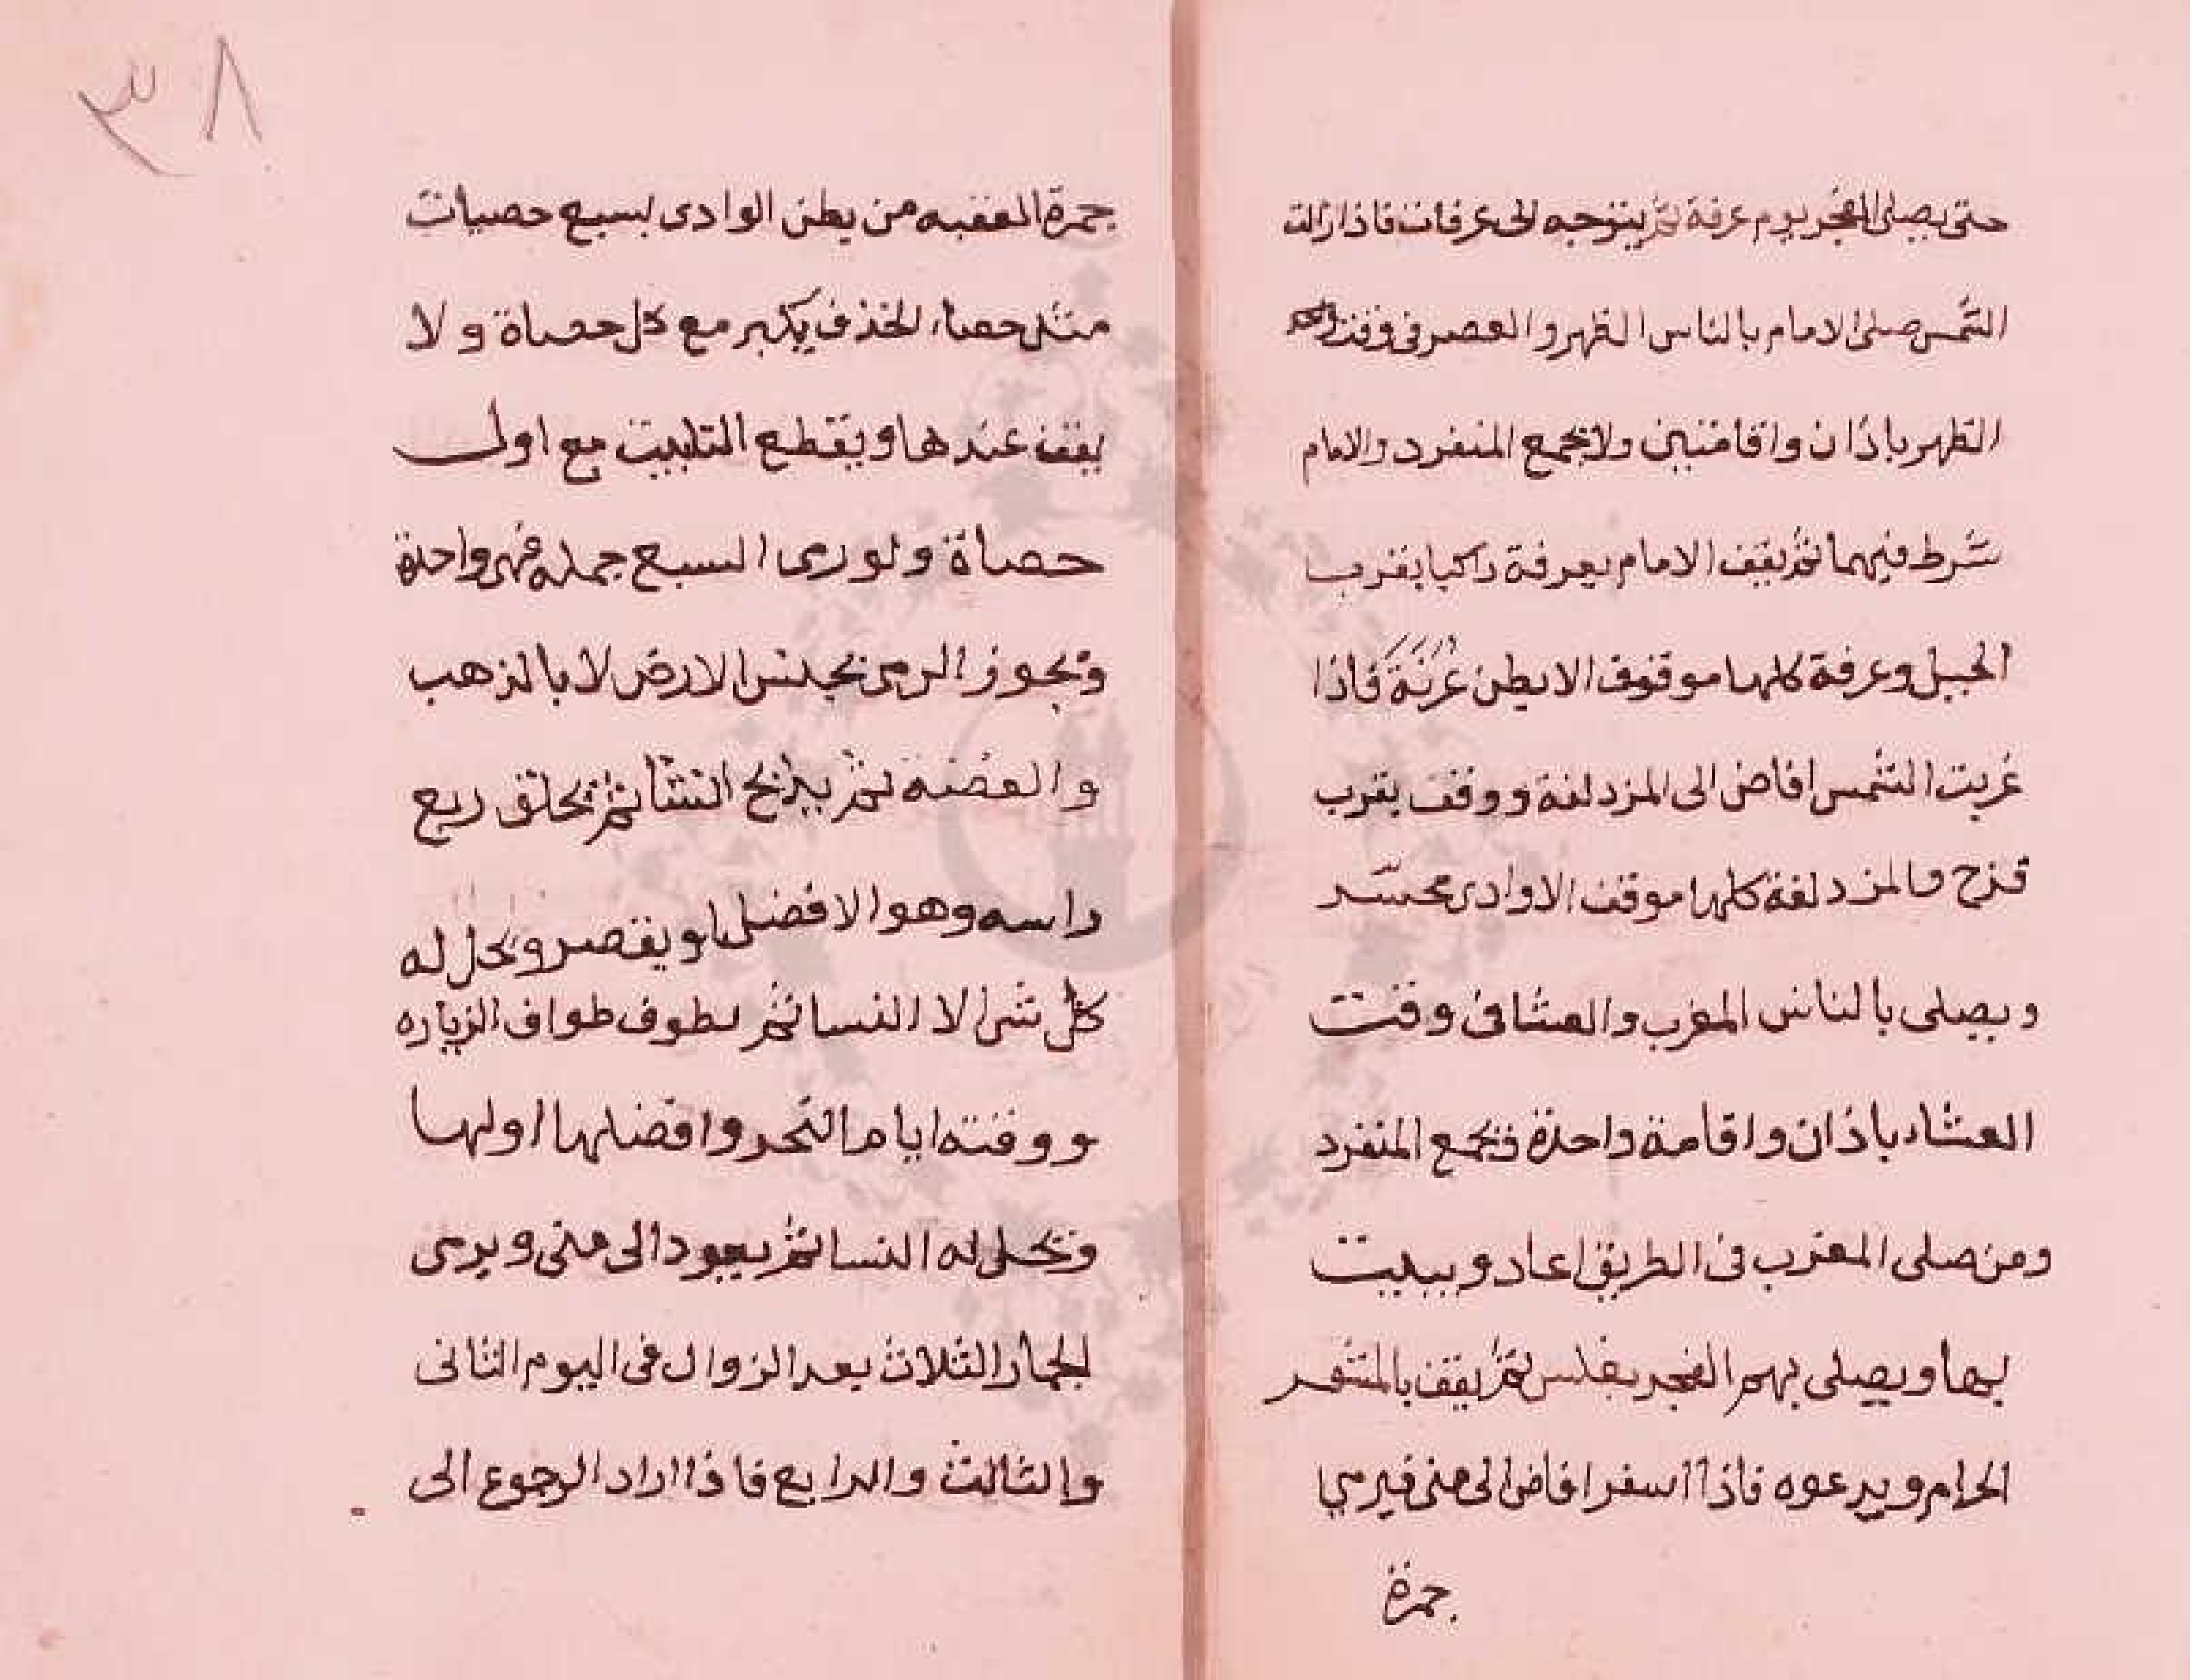 حتى يصلى الفجر يوم عرفة ثم يتوجه الى عرفات فاذا زالت
الشمس صلى الامام بالناس الظهر والعصر فى وقت
الظهر باذان واقامتين ولا يجمع المنفرد والامام
شرط فيهما ثم يقف الامام بعرفة راكبا بقرب
الجبل وعرفة كلها موقف الا بطن عُرَنَةَ فاذا
غربت الشمس افاض الى المزدلفة ووقف بقرب
قزح والمزدلفة كلها موقف الا وادى محسّر
ويصلى بالناس المغرب والعشا فى وقت
العشاء باذان واقامة واحدة ويجمع المنفرد
ومن صلى المغرب فى الطريق اعاد ويبيت
بها ويصلى بهم الفجر بغلس ثم يقف بالمشعر
الحرام ويدعوه فاذا اسفر افاض الى منى فيرمي
جمرة
٣٨
جمرة العقبه من بطن الوادى بسبع حصيات
مثل حصاء الخذف يكبر مع كل حصاة ولا
يقف عندها ويقطع التلبيت مع اول
حصاة ولو رمى السبع جمله فهى واحدة
ويجوز الرمى بجنس الارض لا بالذهب
والفضة ثم يذبح انشا ثم يحلق ربع
راسه وهو الافضل او يقصر ويحل له
كل شى الا النسا ثم يطوف طواف الزياره
ووقته ايام النحر وافضلها اولها
ويحل له النسا ثم يعود الى منى ويرمى
الجمار الثلاث بعد الزوال فى اليوم الثانى
والثالث والرابع فاذا اراد الرجوع الى